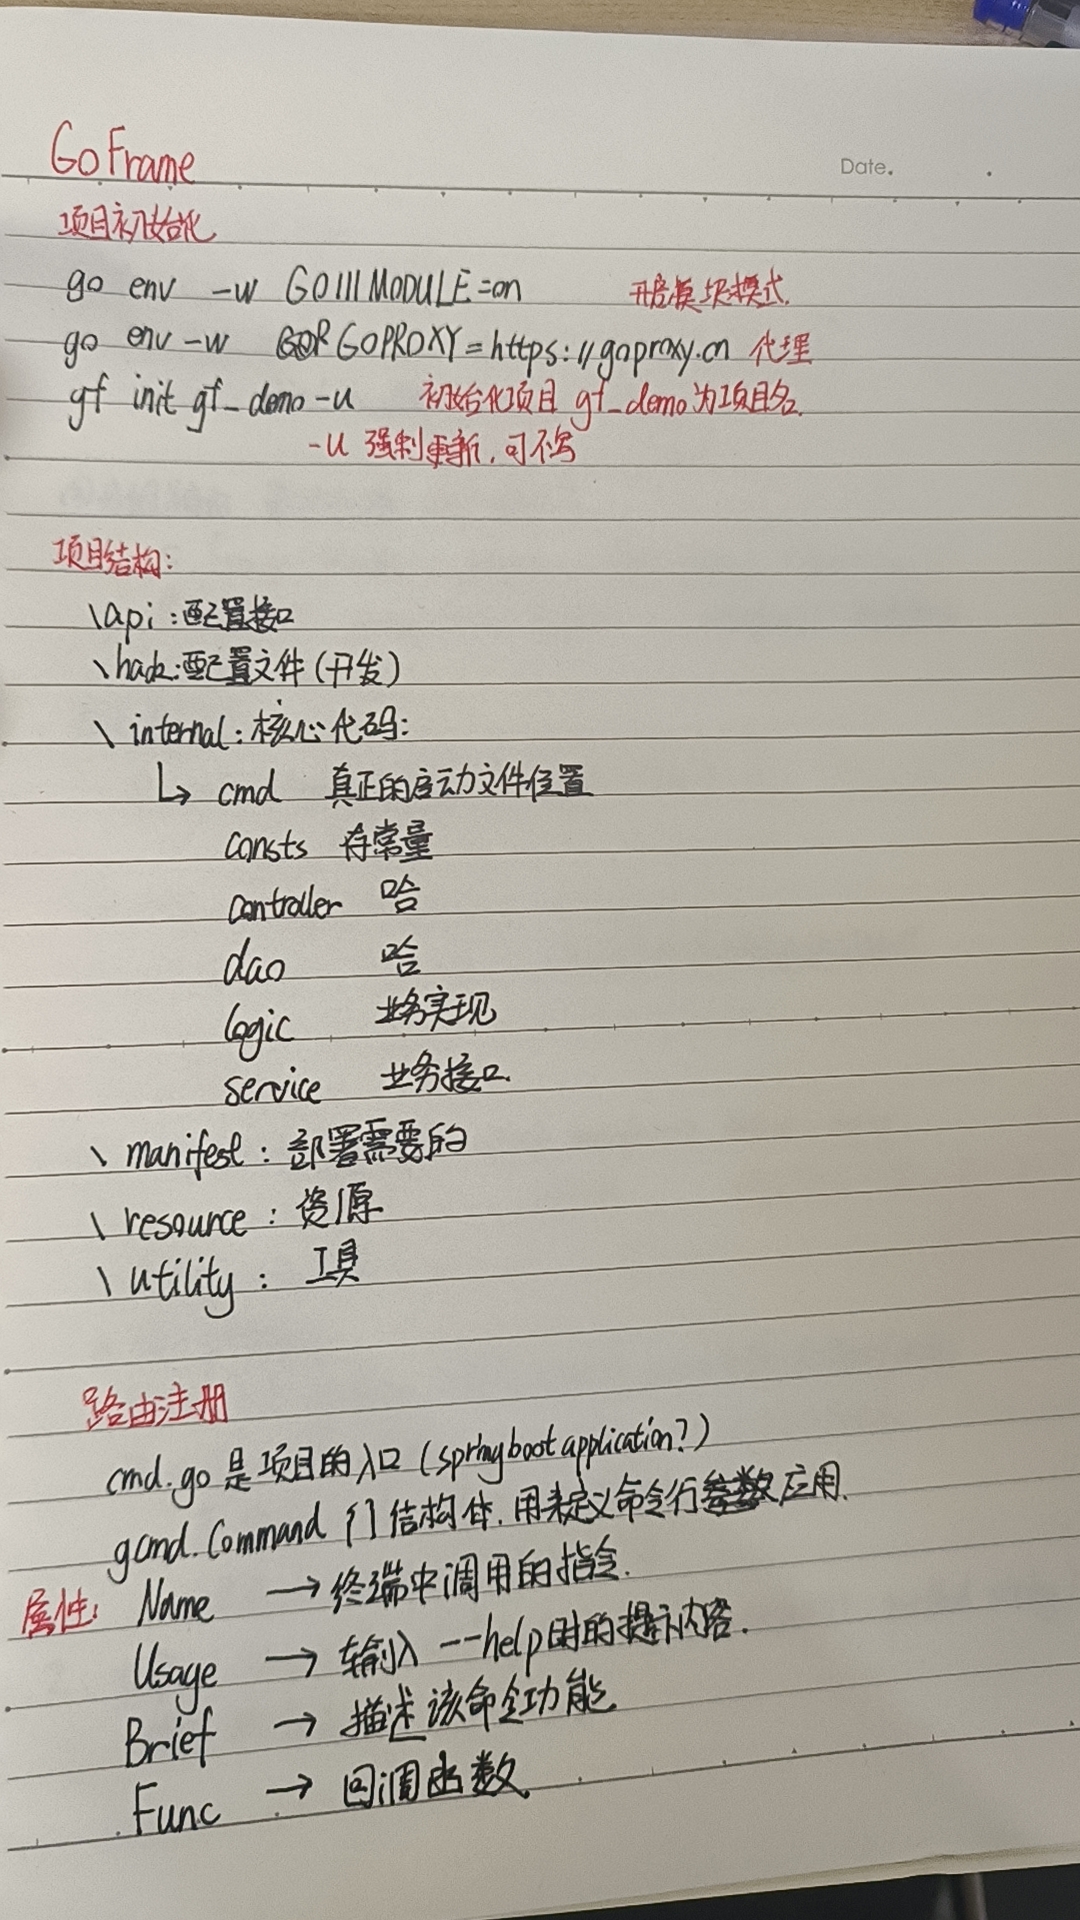 GoFrame
Date.
项目初始化
go env -w GO111MODULE=on 开启模块模式.
go env -w GOPROXY=https://goproxy.cn 代理
gf init gf_demo -u 初始化项目 gf_demo为项目名.
-u 强制更新,可不写
项目结构:
\api:配置接口
\hack:配置文件(开发)
\internal:核心代码:
↳ cmd 真正的启动文件位置
consts 存常量
controller 哈
dao 哈
logic 业务实现
service 业务接口.
\manifest:部署需要的
\resource:资源
\utility:工具
路由注册
cmd.go 是项目的入口(springbootapplication?)
gcmd.Command {}结构体,用来定义命令行应用.
属性: Name → 终端中调用的指令.
Usage → 输入 --help时的提示内容.
Brief → 描述该命令功能
Func → 回调函数.